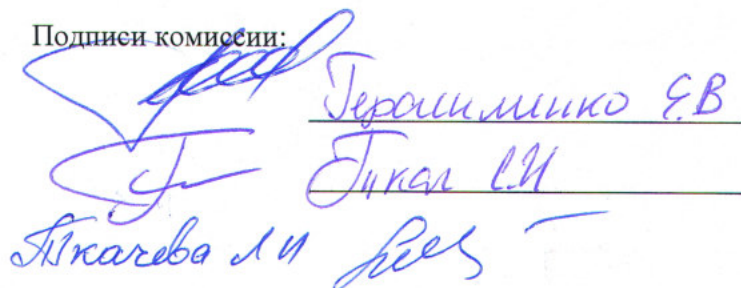 Подписи комиссии:
Герасименко Е.В
Гикал С.И
Ткачева Л И